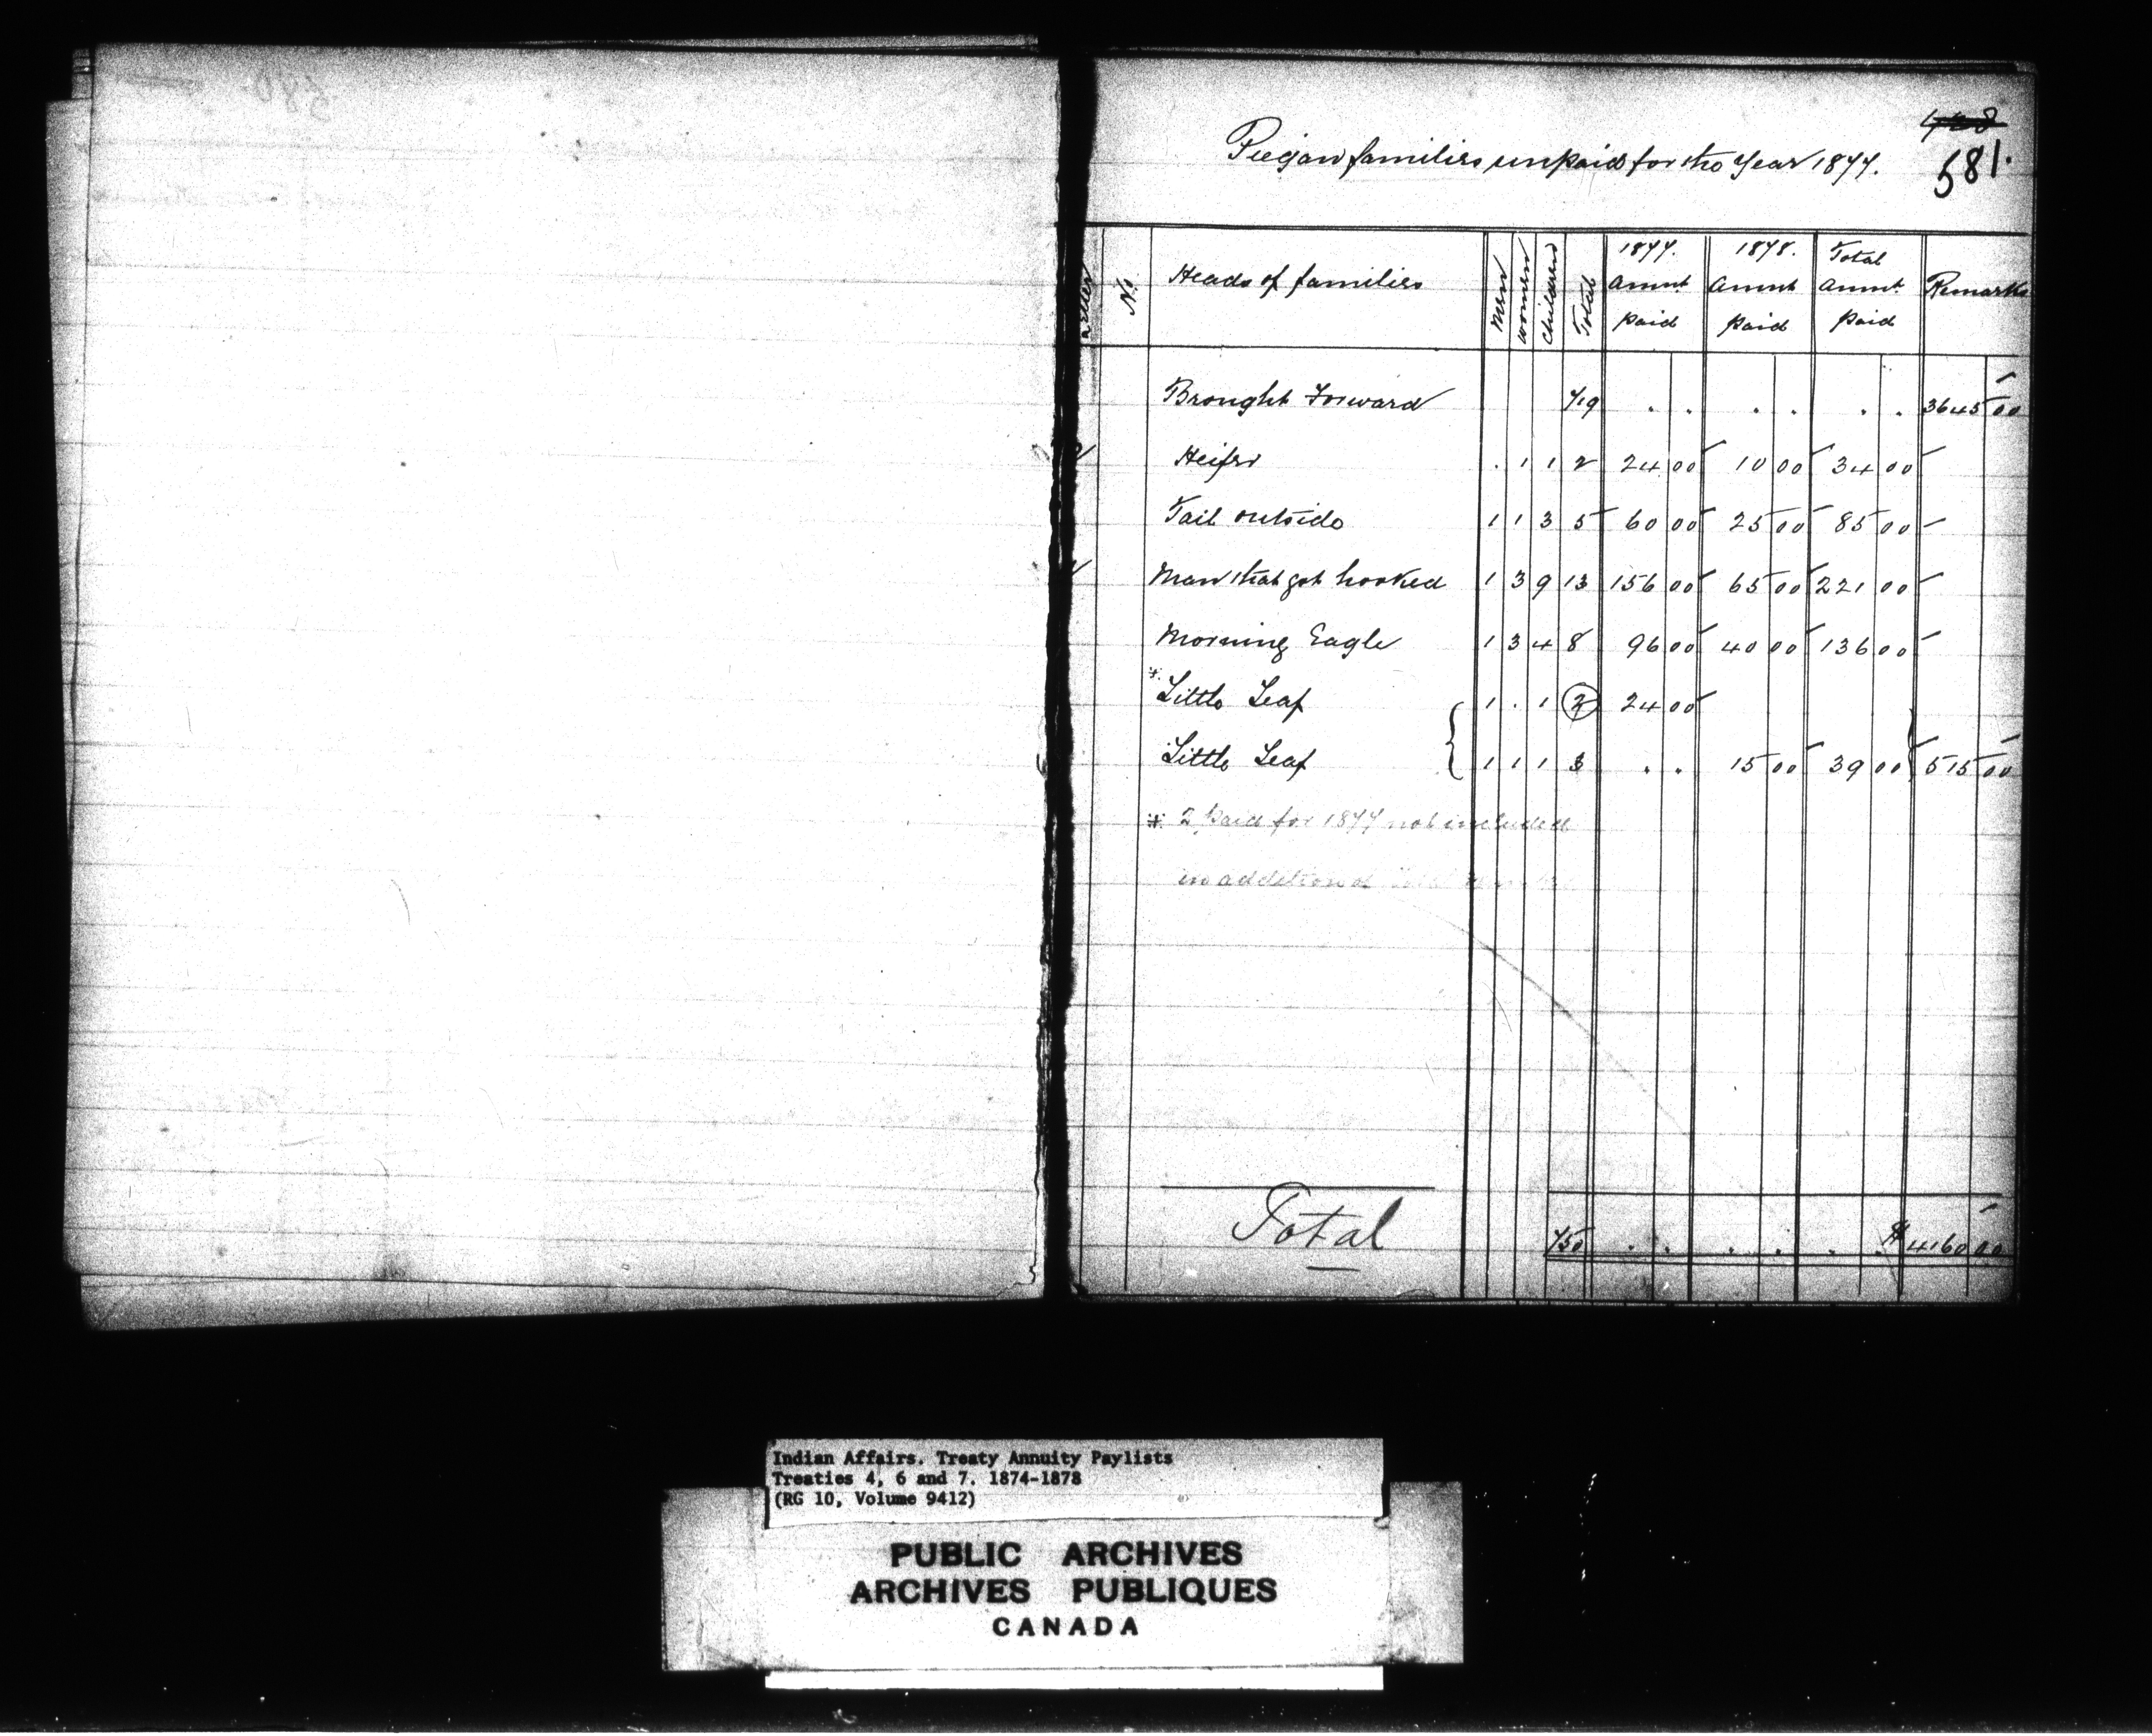 Piegan families unpaid for the Year 1877. 581.
No. Heads of families Men Women Children Total 1877. Amnt. paid 1878. Amnt paid Total Amnt. paid Remarks
Brought Forward 719 . . . . . . 3645 00
Heifer . 1 1 2 24 00 10 00 34 00
Tail outside 1 1 3 5 60 00 25 00 85 00
Man that got hooked 1 3 9 13 156 00 65 00 221 00
Morning Eagle 1 3 4 8 96 00 40 00 136 00
* Little Leaf 1 . 1 2 24 00
Little Leaf 1 1 1 3 . . 15 00 39 00 515 00
* 2 paid for 1877 not included
in addition
Total 750 . . . . . . $ 4160 00
Indian Affairs. Treaty Annuity Paylists
Treaties 4, 6 and 7. 1874-1878
(RG 10, Volume 9412)
PUBLIC ARCHIVES
ARCHIVES PUBLIQUES
CANADA